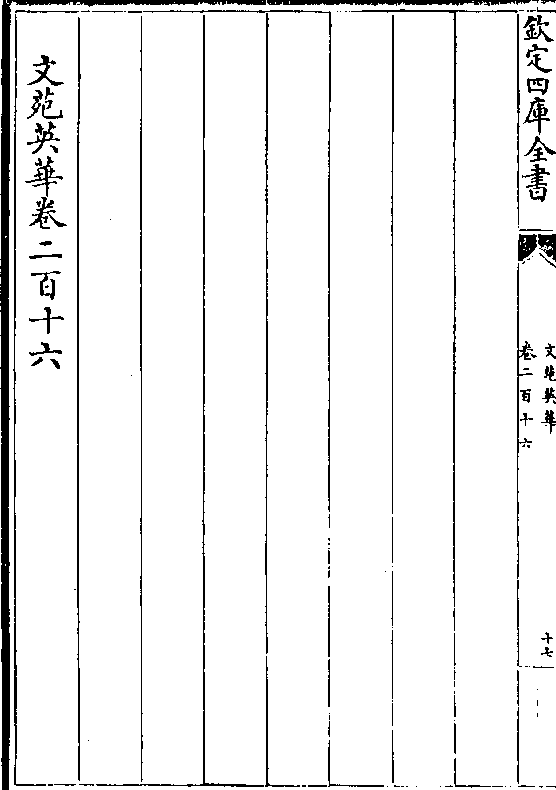 欽定四庫全書
文苑英華
卷二百十六
十七
文苑英華卷二百十六